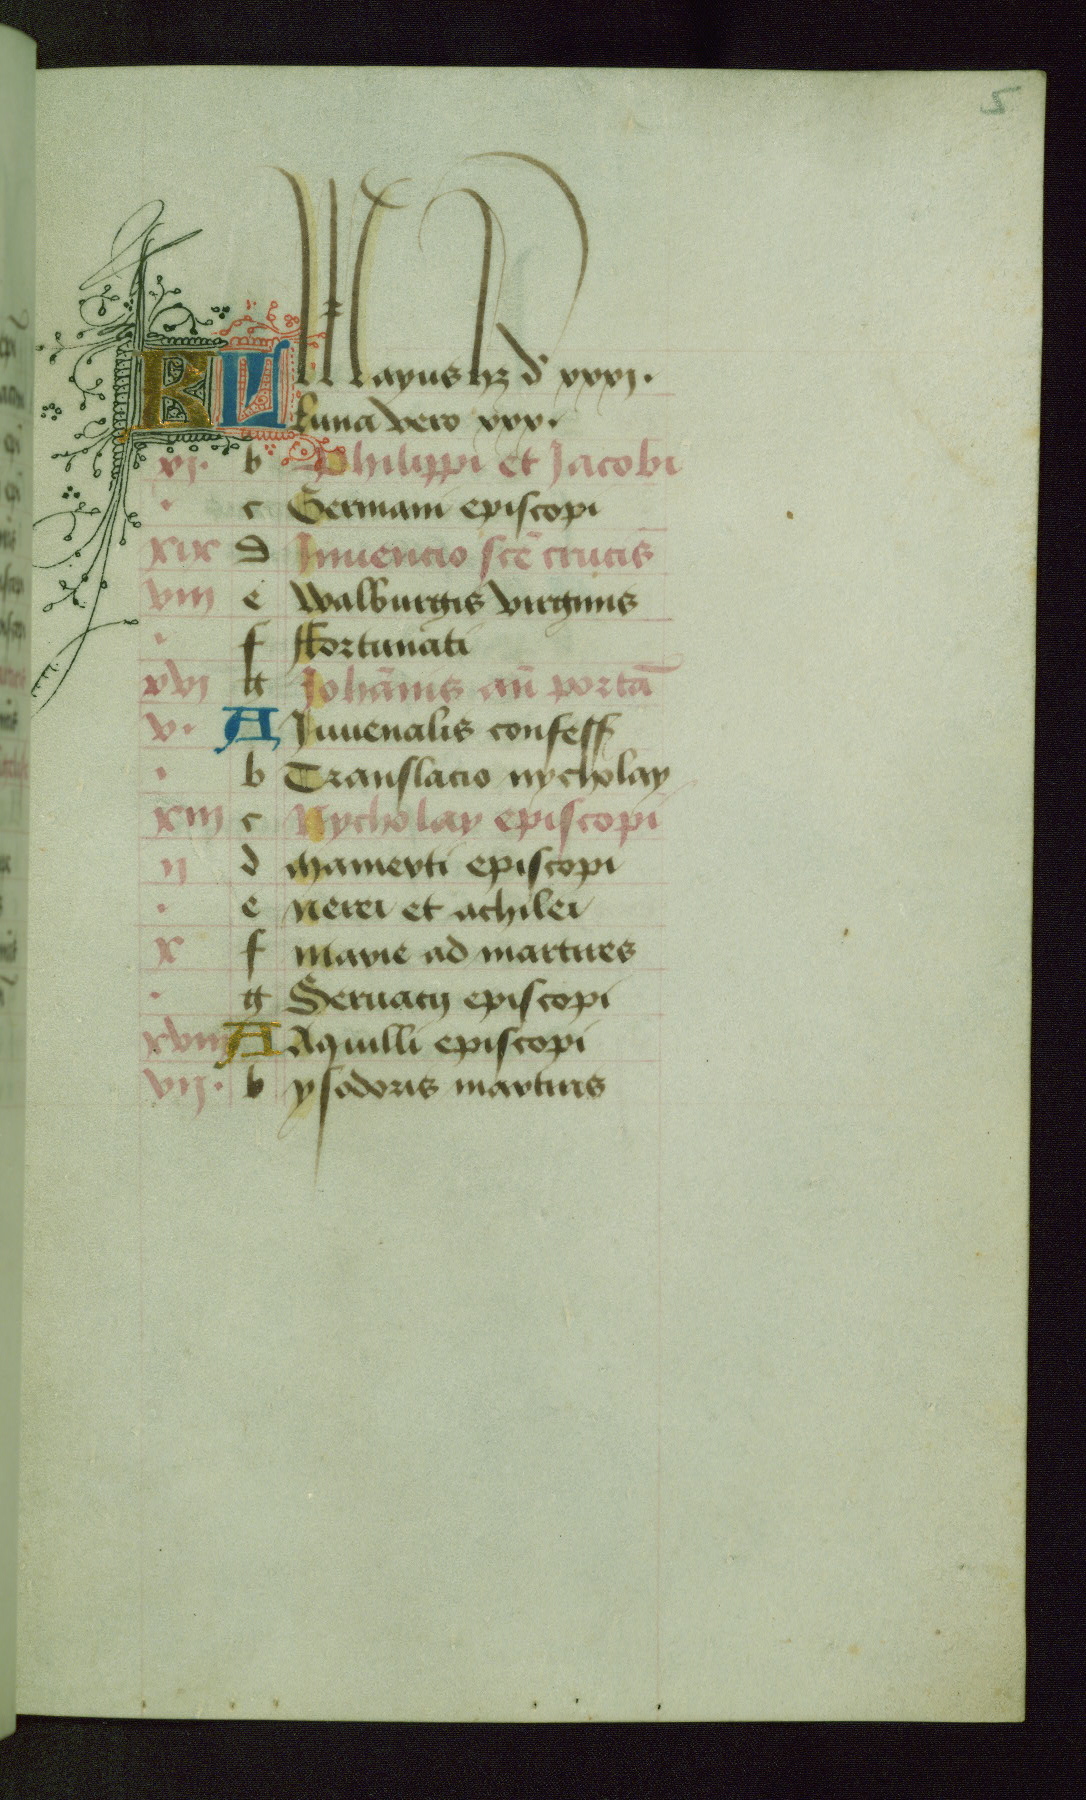 5
KL Mayus hꝫ d' xxxj.
Luna vero xxx.
xj. b Philippi et Jacobi
. c Germani episcopi
xix d Inuencio scē crucis
viii e walburgis virginis
. f ffortunati
xvj g Johānis an̄ portā
v. A Juuenalis confess
. b Translacio nycholay
xiii c Nycholay episcopi
ij d mamerti episcopi
. e nerei et achilei
x f marie ad martires
. g Seruacij episcopi
xviii A Aquilli episcopi
vij. b ysodoris martiris